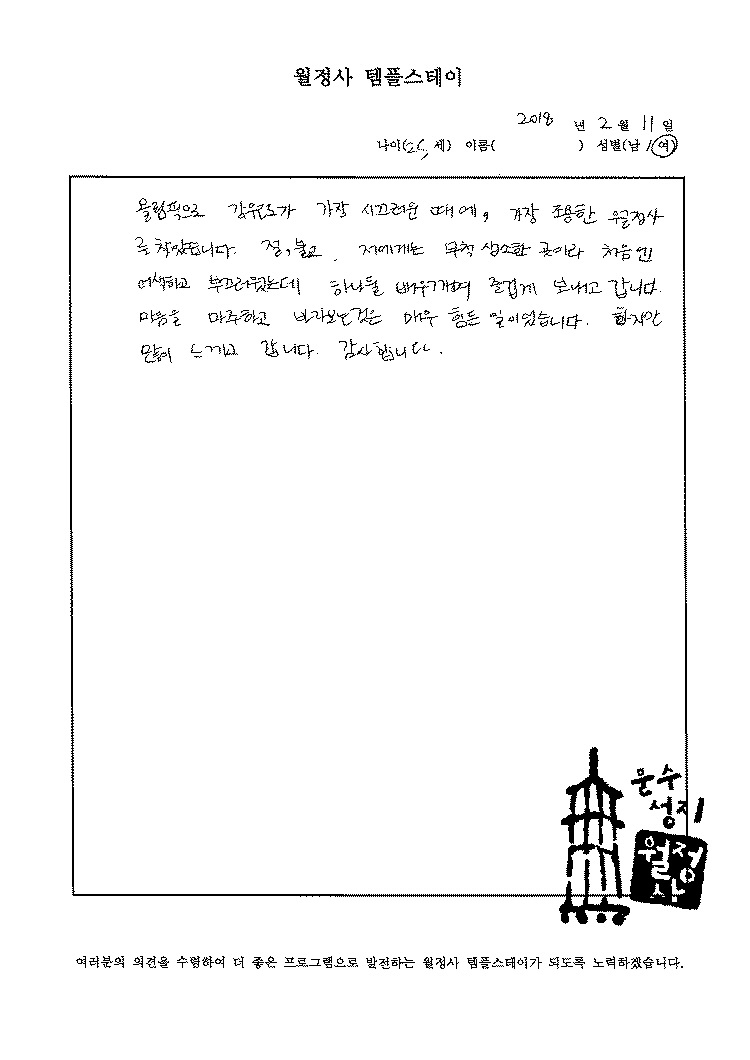 월정사 템플스테이
2018 년 2 월 11 일
나이( 세) 이름( )성별(남/여)
올림픽으로 강원도가 가장 시끄러운 때에, 가장 조용한 월정사
를 찾았습니다. 절, 불교. 저에게는 무척 생소한 곳이라 처음엔
어색하고 부끄러웠는데 하나둘 배우가며 즐겁게 보내고 갑니다.
마음을 마주하고 바라보는것은 매우 힘든 일이었습니다. 하지만
많이 느끼고 갑니다. 감사합니다.
문수
성지
월정
사
여러분의 의견을 수렴하여 더 좋은 프로그램으로 발전하는 월정사 템플스테이가 되도록 노력하겠습니다.